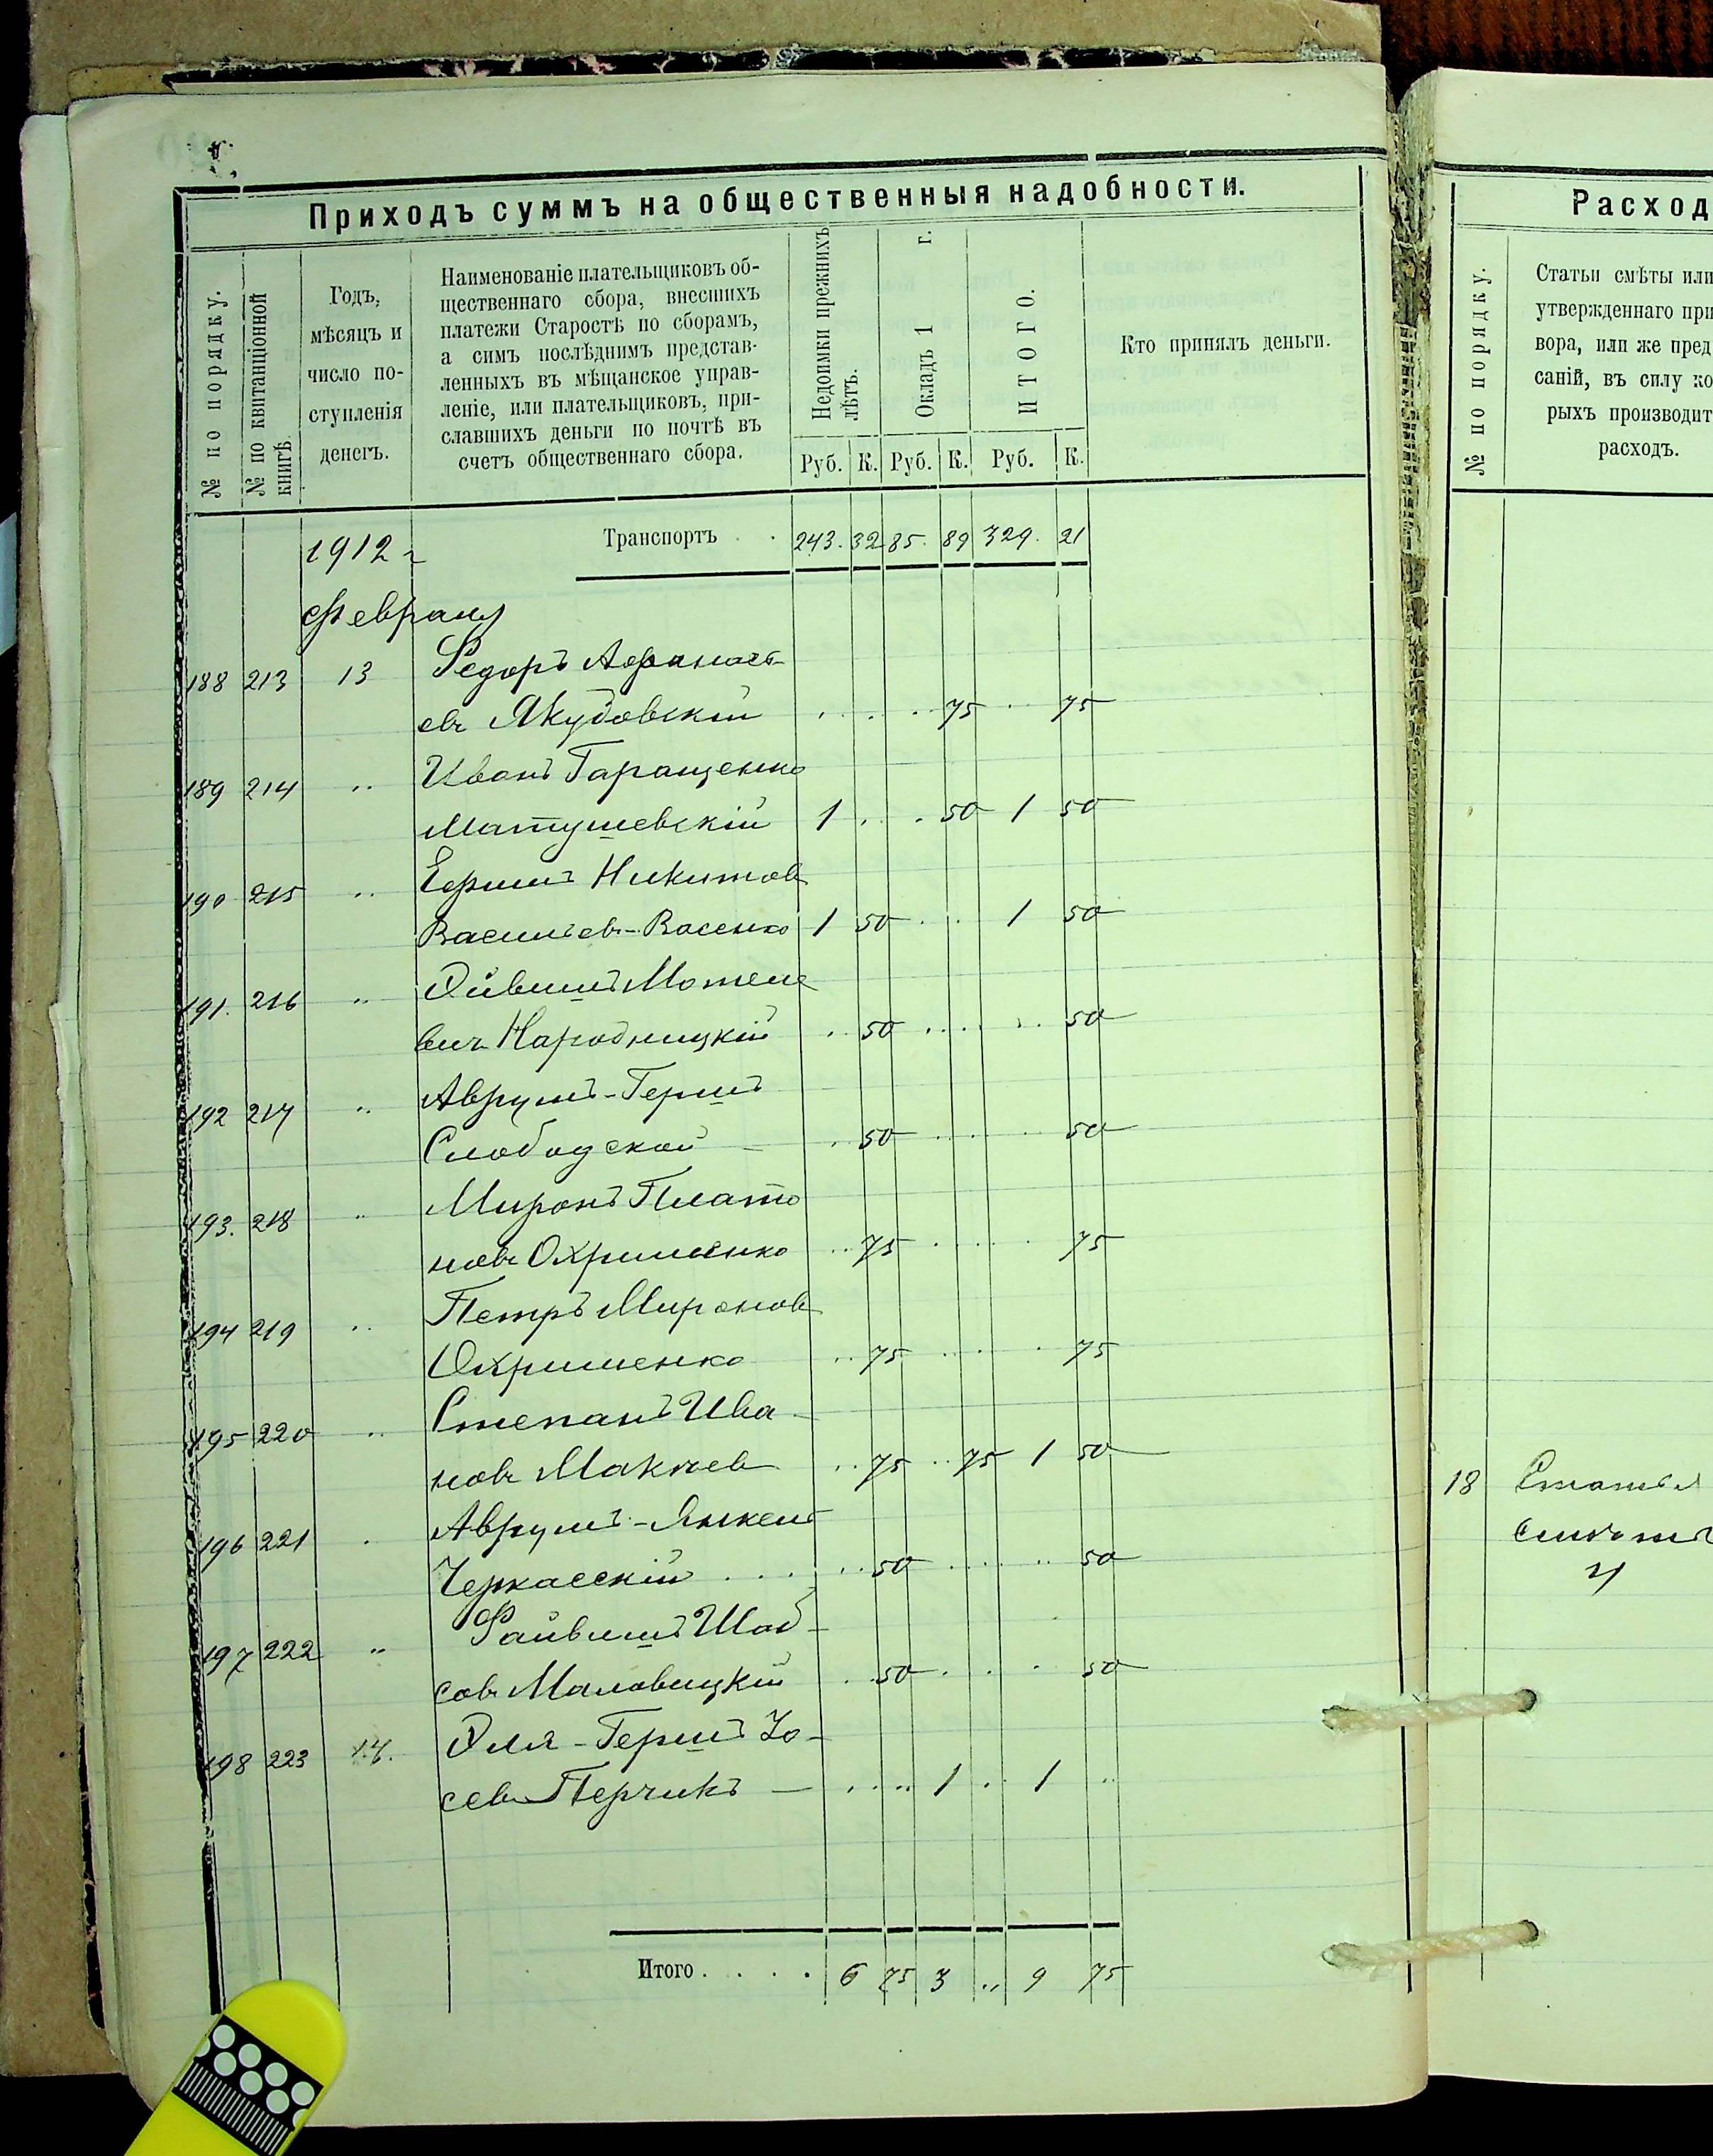 Приходъ суммъ на общественныя надобности.
№ по порядку.
№ по квитанціонной
книгѣ.
Годъ,
мѣсяцъ и
число по-
ступленія
денегъ.
Наименованіе плательщиковъ об-
щественнаго сбора, внесшихъ
платежи Старостѣ по сборамъ,
а симъ послѣднимъ представ-
ленныхъ въ мѣщанское управ-
леніе, или плательщиковъ, при-
славшихъ деньги по почтѣ въ
счетъ общественнаго сбора.
Недоимки прежнихъ
лѣтъ.
Окладъ 1 г.
ИТОГО.
Кто принялъ деньги.
Руб. К. Руб. К. Руб. К.
1912 г Транспортъ . . 243. 32 85. 89 329. 21
Февраля
188 213 13 Федоръ Афанась-
евъ Якубовскій . . . . 75 . . 75
189 214 „ Иванъ Гаращенко
Матушевскій 1 . . . 50 1 50
190 215 „ Ефимъ Никитовъ
Васильев-Васенко 1 50 . . . 1 50
191. 216 „ Мотеле
вичъ Народницкій . . 50 . . . . . . 50
192 217 „ Аврумъ-Гершъ
Слободской — . 50 . . . . 50
193. 218 „ Миронъ Плато
новъ Охрименко . . 75 . . . . 75
194 219 „ Петръ Миронов
Охрименко . . 75 . . . . 75
195 220 „ Степанъ Ива-
новъ Макѣев . . 75 . . 75 1 50
196 221 . Аврумъ-Янкель
Черкасскій . . . . . 50 . . . . . 50
197 222 „ Файвишъ Шаб-
совъ Маловицкій . . 50 . . . 50
198 223 14. Эля-Гершъ Іо-
сев Перчикъ — . . „ 1 . . 1 „
Итого . . . . 6 75 3 „ 9 75
Расход
№ по порядку.
Статьи смѣты или
утвержденнаго при
вора, или же пред
саній, въ силу ко
рыхъ производит
расходъ.
18 Статья
смѣты
4